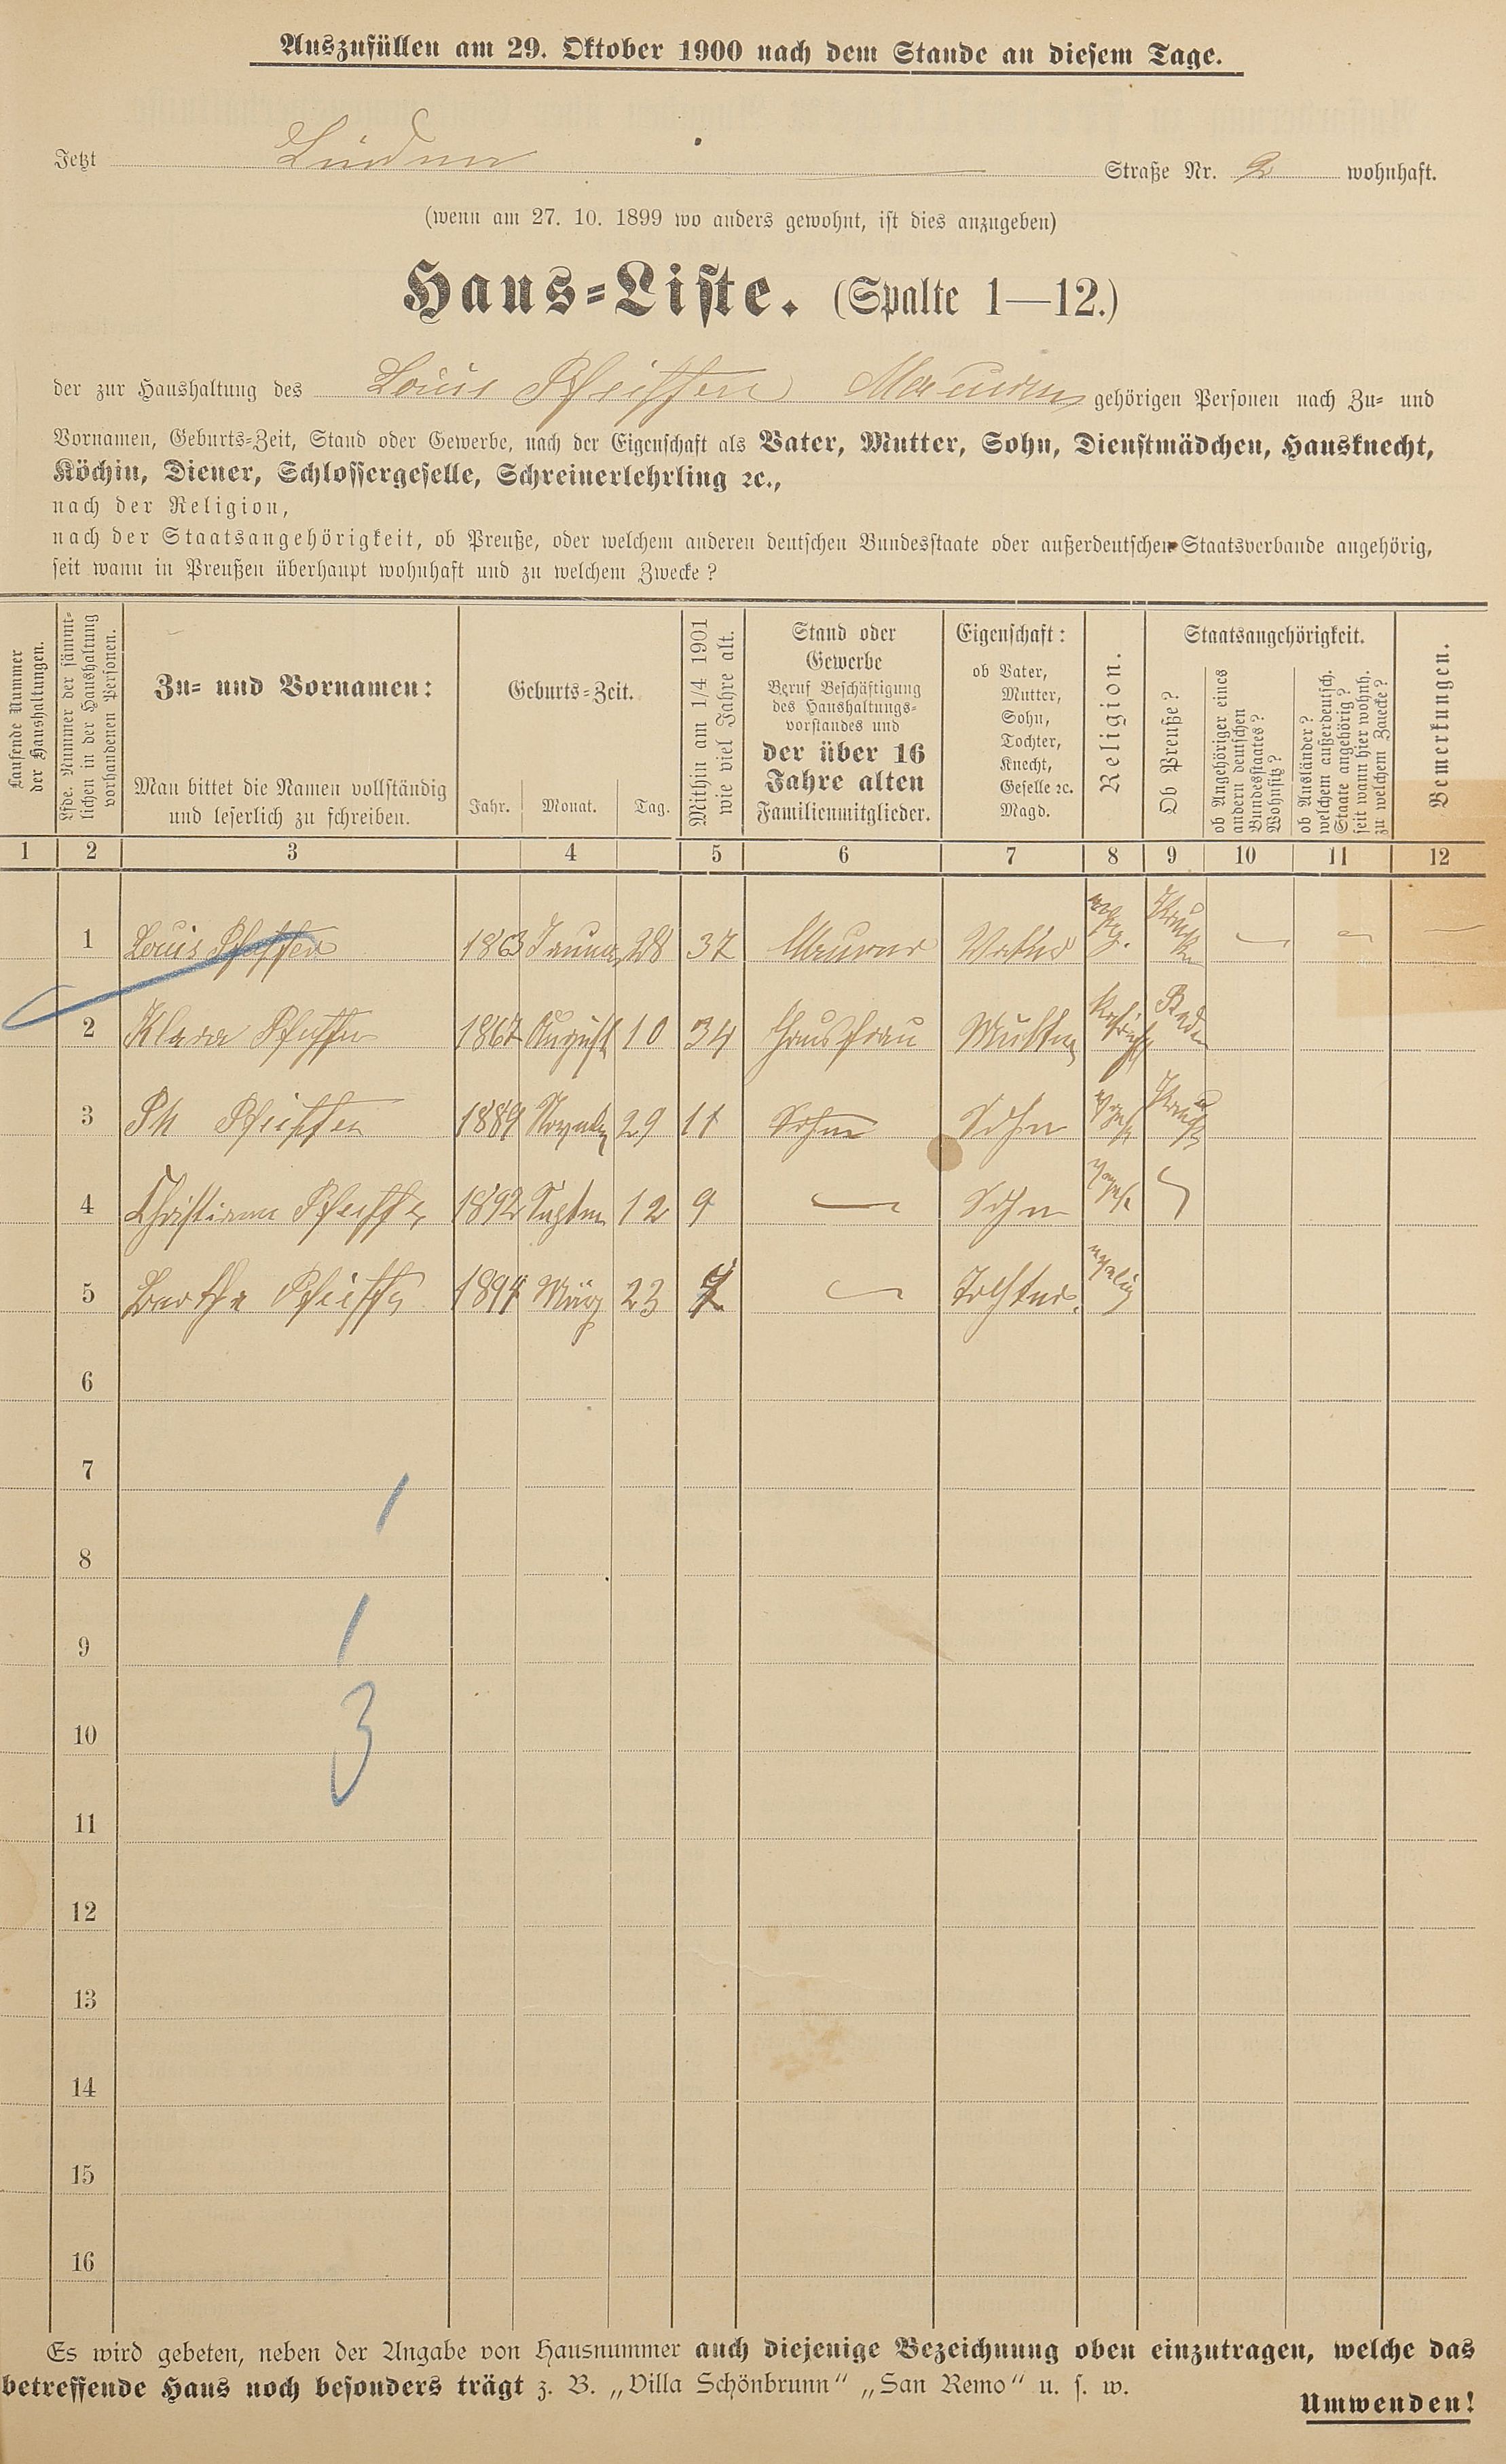 Auszufüllen am 29. Oktober 1900 nach dem Stande an diesem Tage.
Jetzt Linden Straße Nr. 2 wohnhaft.
(wenn am 27. 10. 1899 wo anders gewohnt, ist dies anzugeben)
Haus-Liste. (Spalte 1—12.)
der zur Haushaltung des Louis Pfeiffer Maurer gehörigen Personen nach Zu- und
Vornamen, Geburts-Zeit, Stand oder Gewerbe, nach der Eigenschaft als Vater, Mutter, Sohn, Dienstmädchen, Hausknecht,
Köchin, Diener, Schlossergeselle, Schreinerlehrling ꝛc.,
nach der Religion,
nach der Staatsangehörigkeit, ob Preuße, oder welchem anderen deutschen Bundesstaate oder außerdeutschen Staatsverbande angehörig,
seit wann in Preußen überhaupt wohnhaft und zu welchem Zwecke?
Laufende Nummer
der Haushaltungen.
Lfde. Nummer der sämmt-
lichen in der Haushaltung
vorhandenen Personen.
Zu- und Vornamen:
Man bittet die Namen vollständig
und leserlich zu schreiben.
Geburts-Zeit.
Jahr. Monat. Tag.
Mithin am 1/4 1901
wie viel Jahre alt.
Stand oder
Gewerbe
Beruf Beschäftigung
des Haushaltungs-
vorstandes und
der über 16
Jahre alten
Familienmitglieder.
Eigenschaft:
ob Vater,
Mutter,
Sohn,
Tochter,
Knecht,
Geselle ꝛc.
Magd.
Religion.
Staatsangehörigkeit.
Ob Preuße?
ob Angehöriger eines
andern deutschen
Bundesstaates?
Wohnsitz?
ob Ausländer?
welchem außerdeutsch.
Staate angehörig?
seit wann hier wohnh.
zu welchem Zwecke?
Bemerkungen.
1 2 3 4 5 6 7 8 9 10 11 12
1 Louis Pfeiffer 1863 Januar 28 37 Maurer Vater evg. Preuße — — —
2 Klara Pfeiffer 1867 August 10 34 Hausfrau Mutter Kathol Baden
3 Ph Pfeiffer 1889 Novemb 29 11 Sohn Sohn evgl Preuße
4 Christian Pfeiffer 1892 Septem 12 9 — Sohn evgel
5 Bertha Pfeiffer 1894 März 23 7 — Tochter.
6
7
1
8
9
1
10
3
11
12
13
14
15
16
Es wird gebeten, neben der Angabe von Hausnummer auch diejenige Bezeichnung oben einzutragen, welche das
betreffende Haus noch besonders trägt z. B. „Villa Schönbrunn“ „San Remo“ u. s. w.
Umwenden!